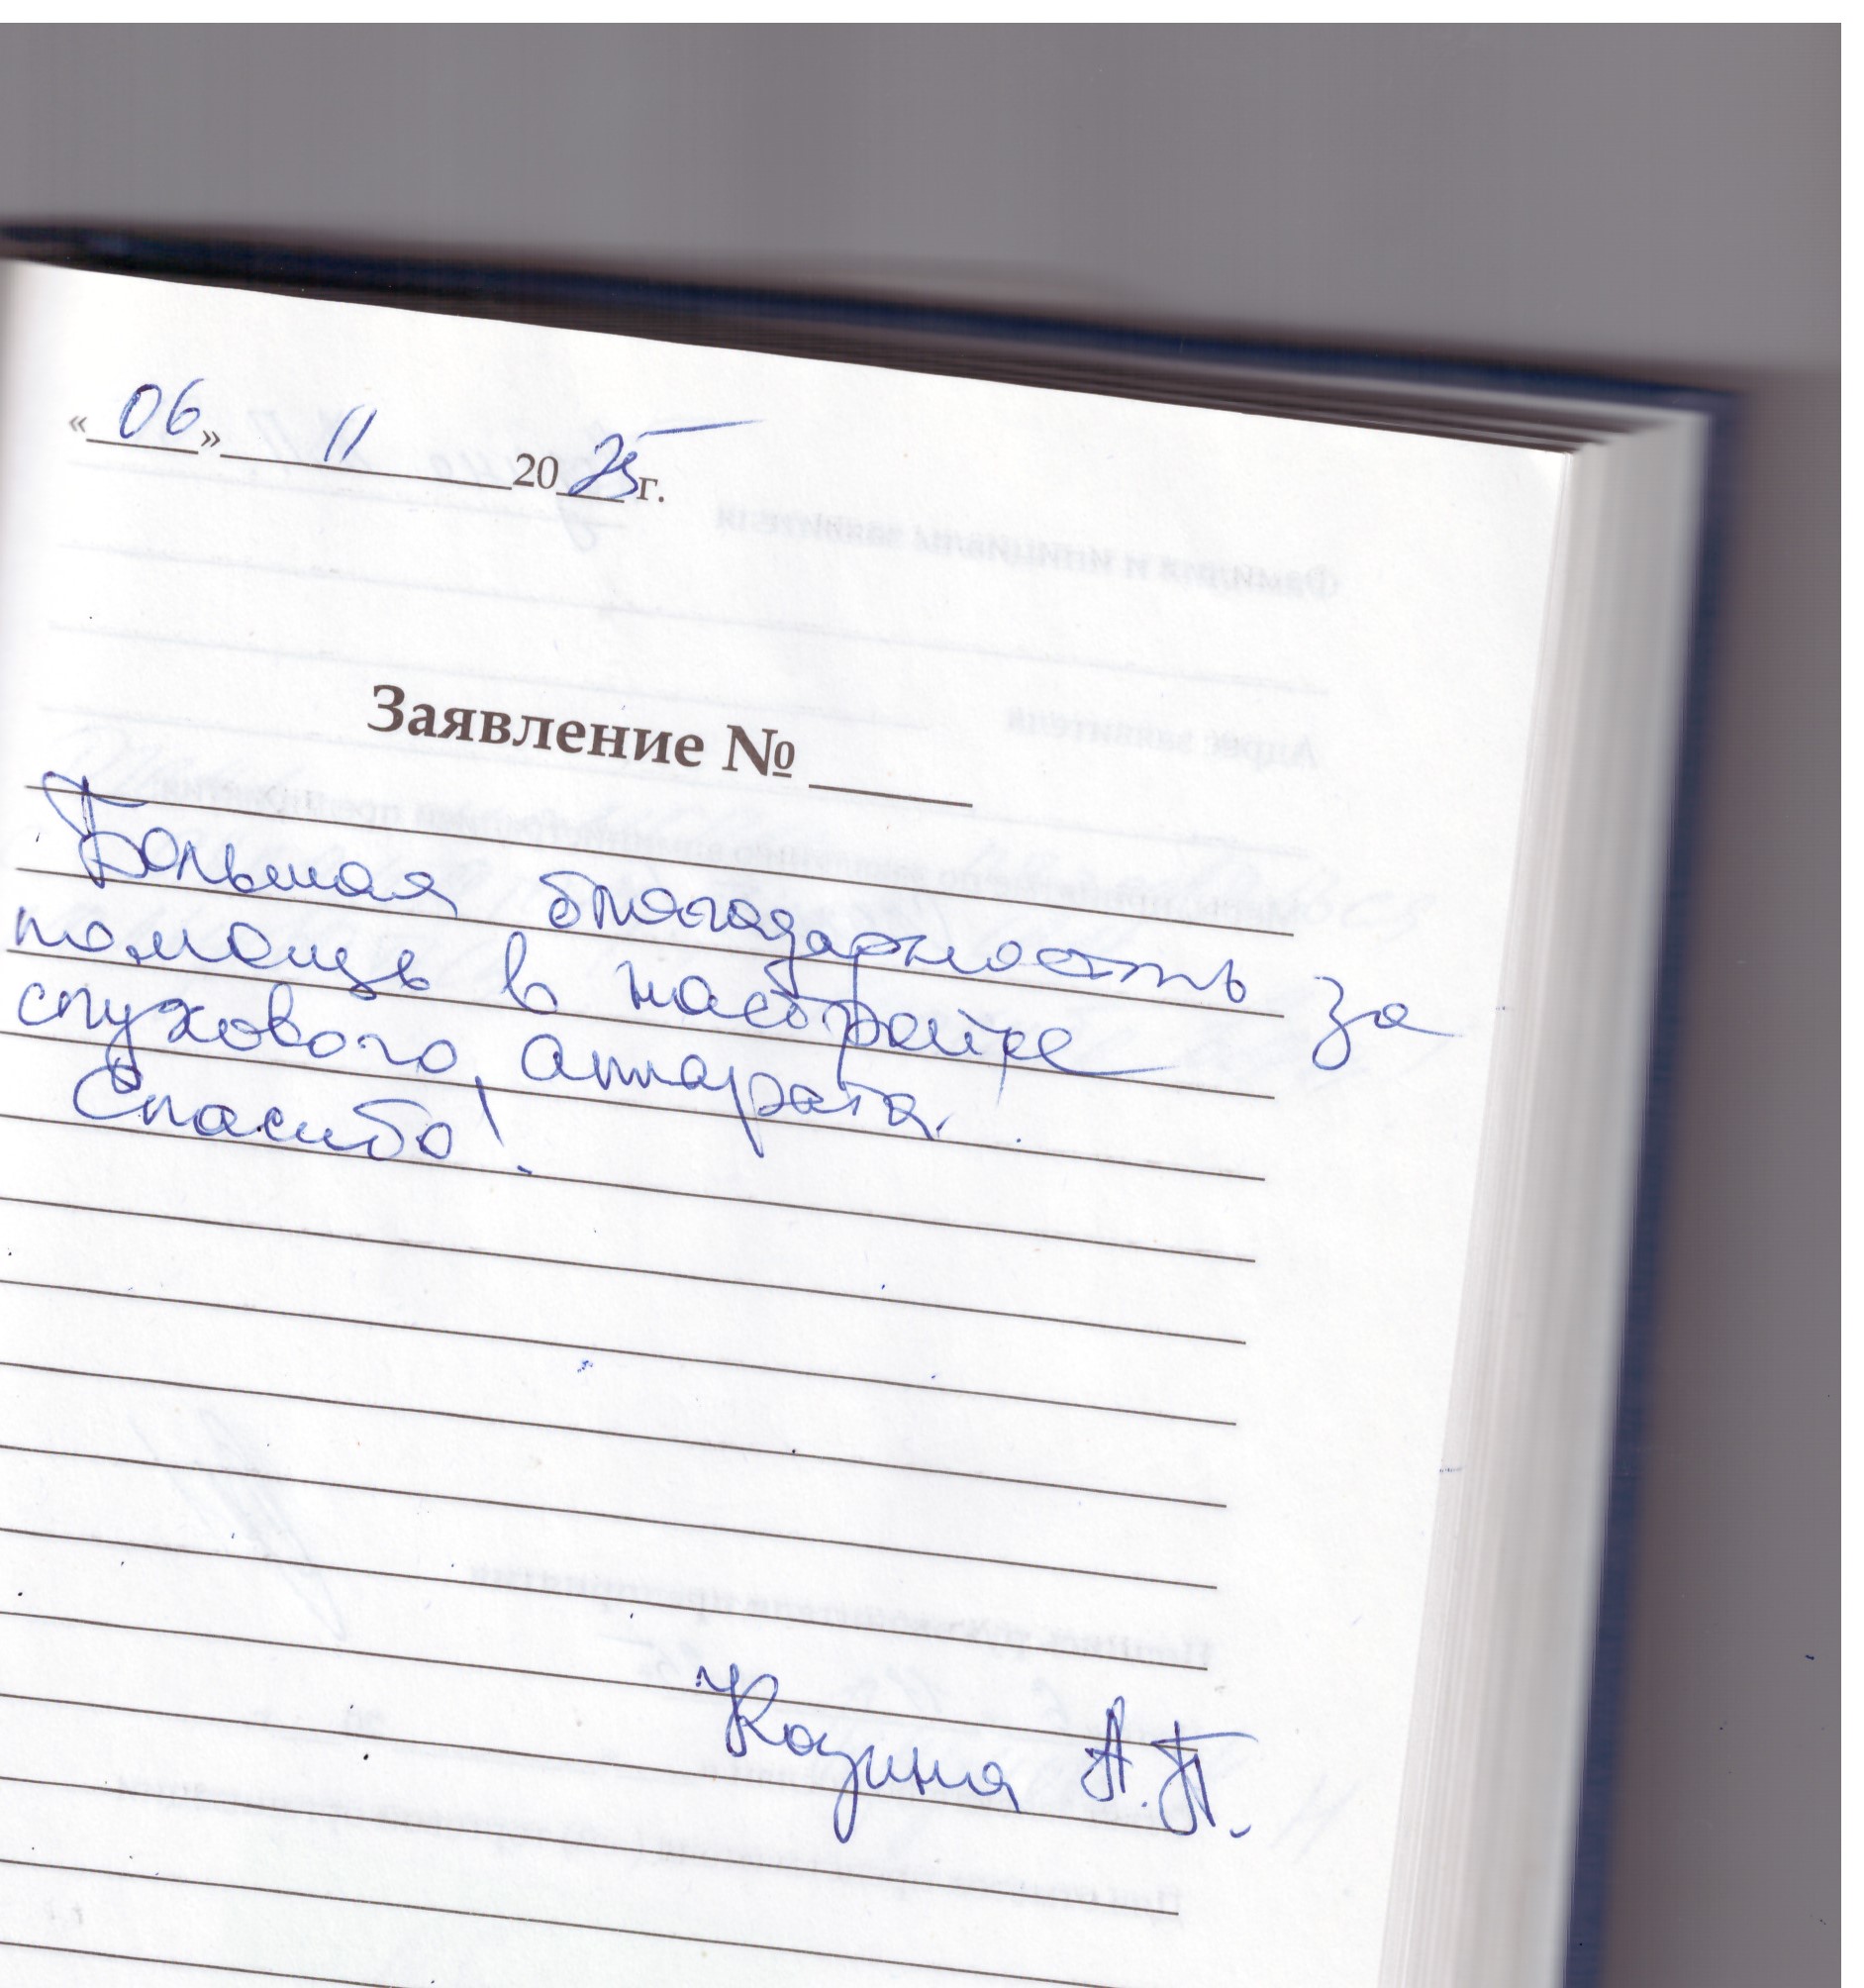 «06» 11 2025г.
Заявление № ____
Большая благодарность за
помощь в настройке
слухового аппарата.
Спасибо!
Козина А.П.